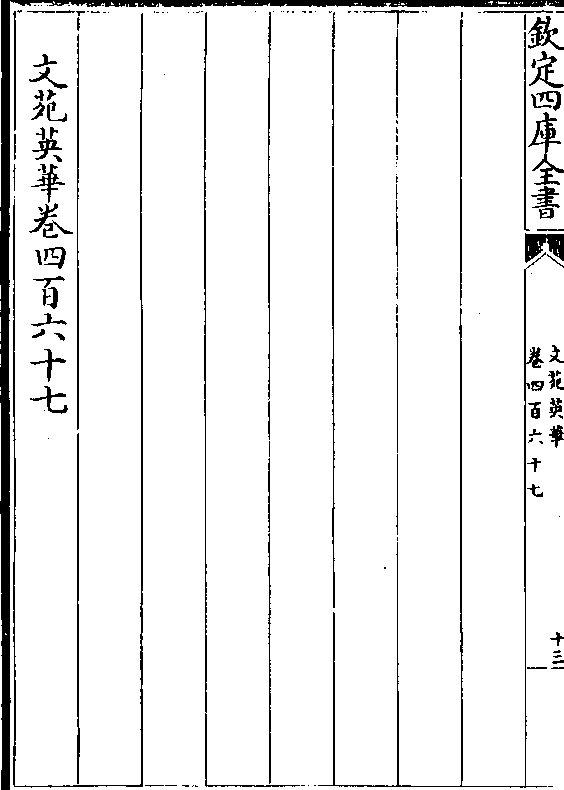 欽定四庫全書
文苑英華
卷四百六十七
十三
文苑英華卷四百六十七